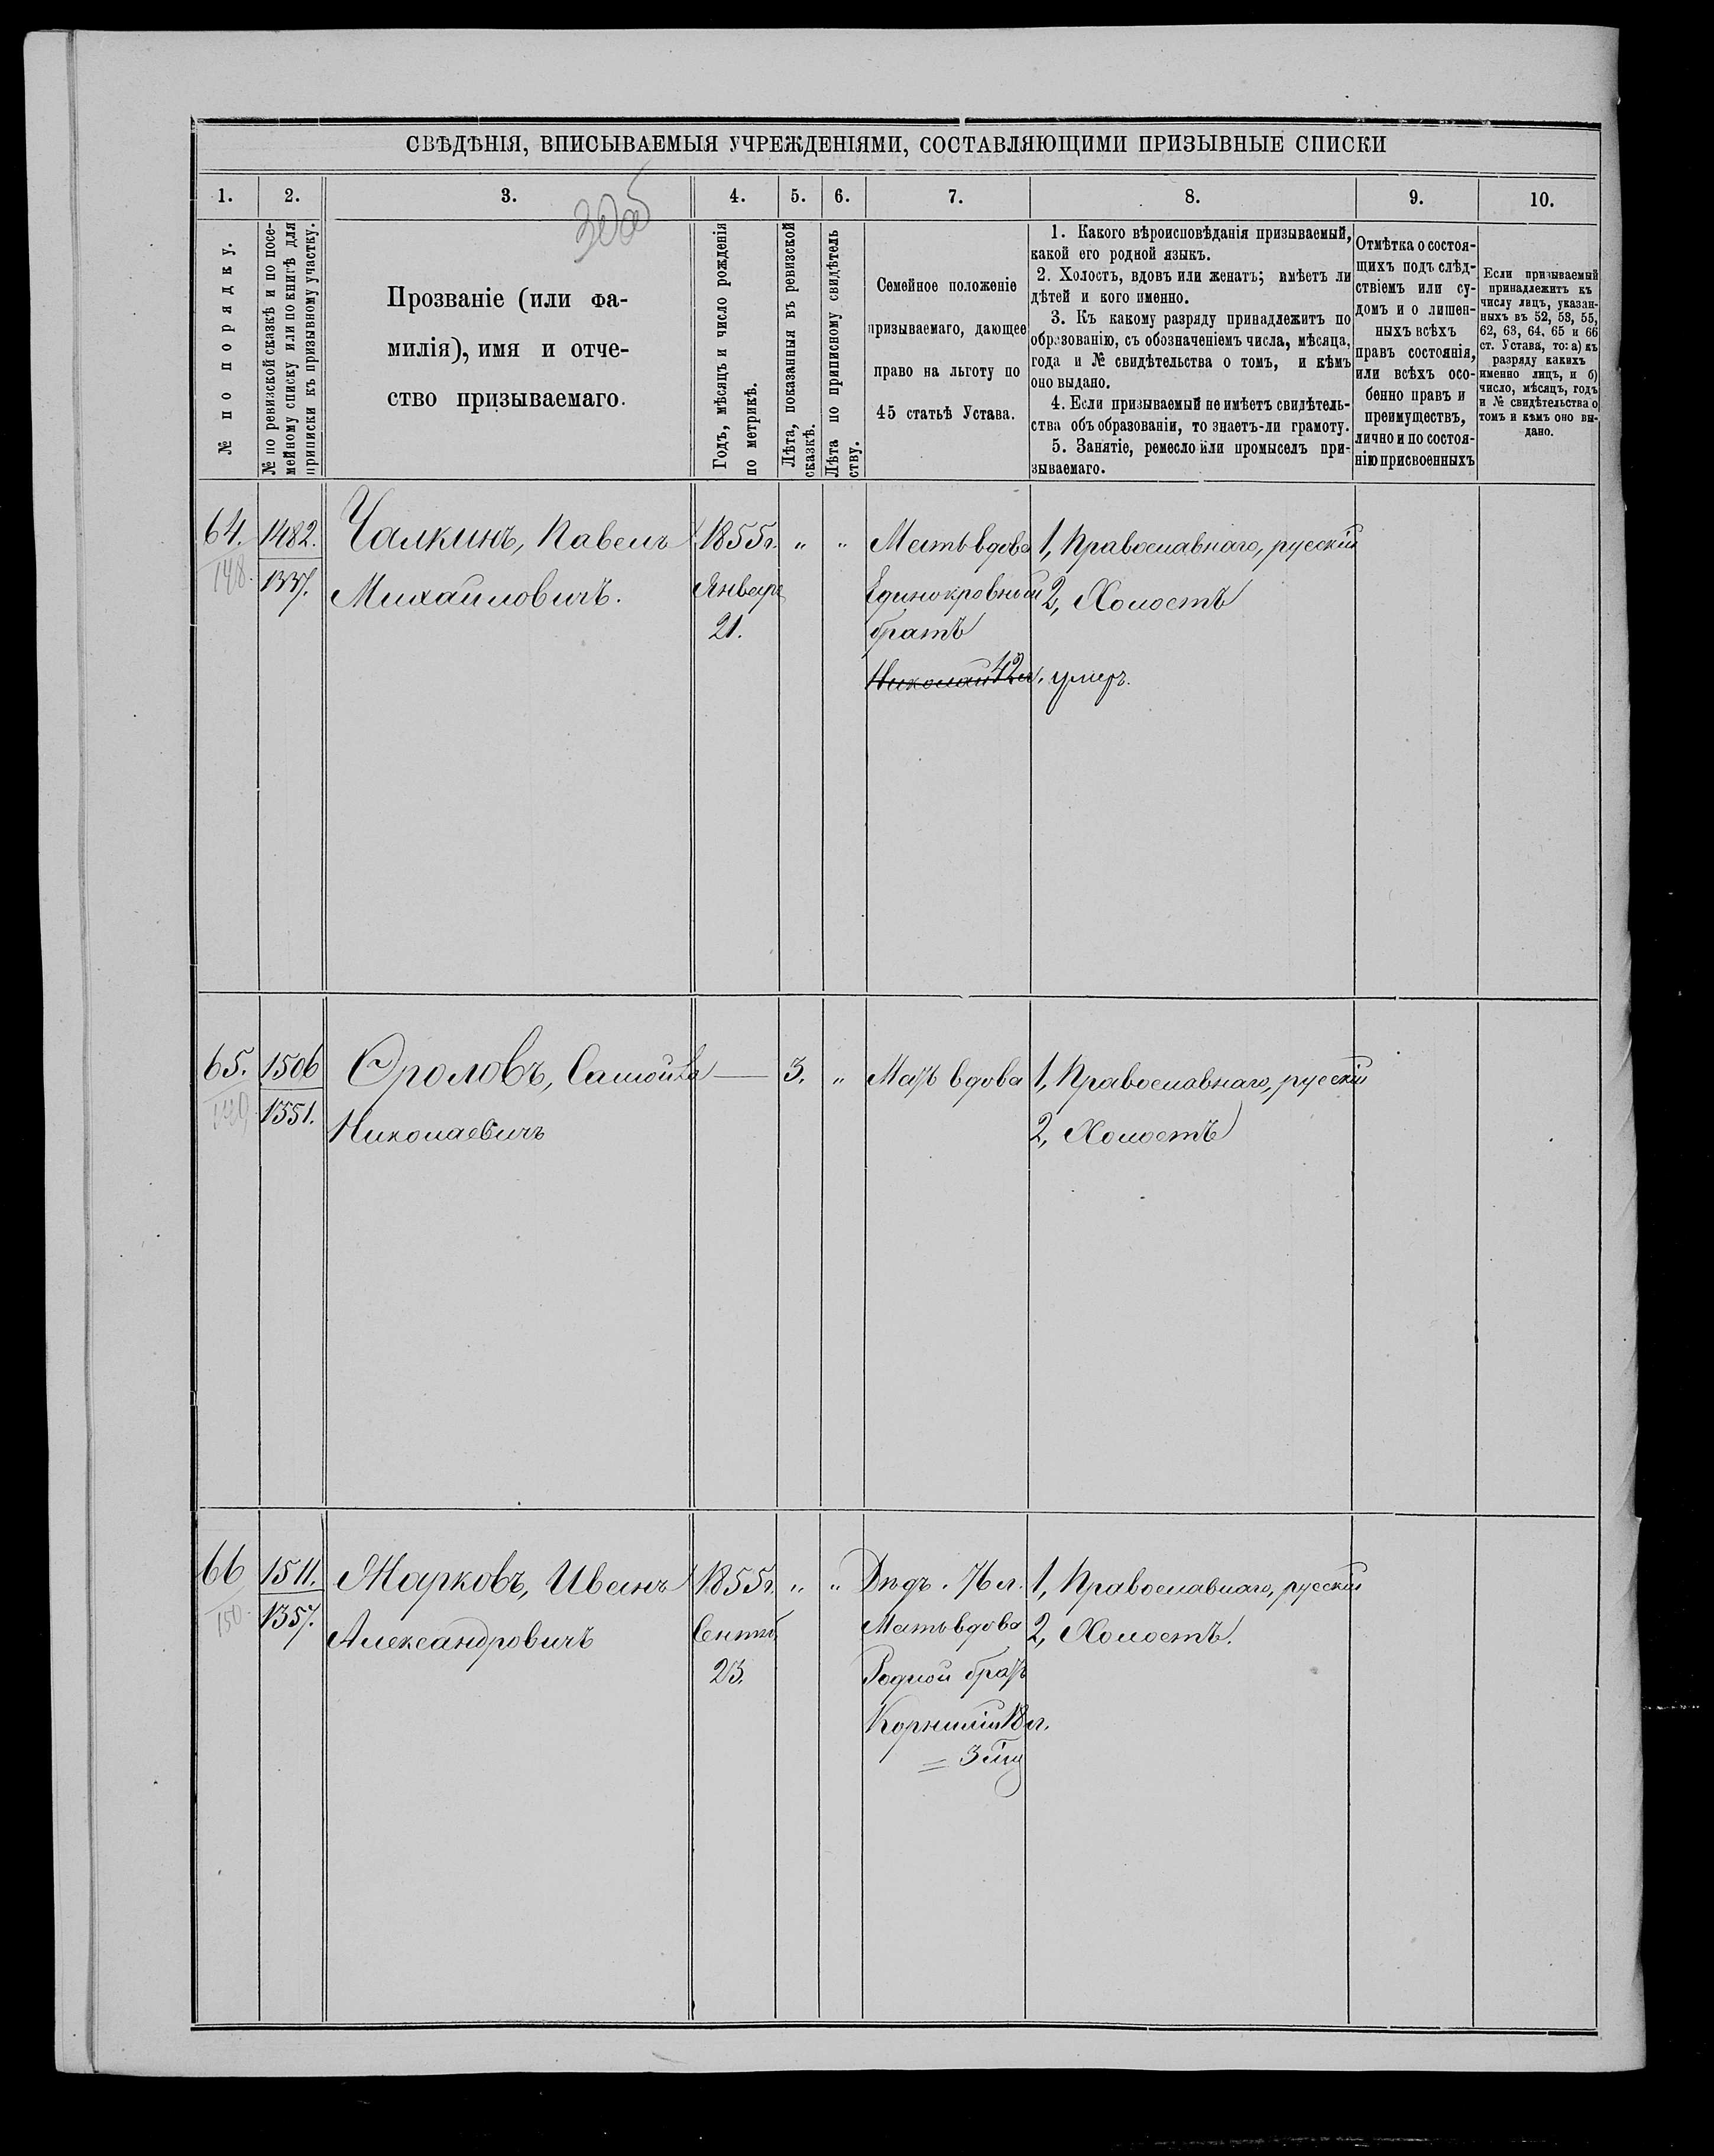 СВѢДѢНІЯ, ВПИСЫВАЕМЫЯ УЧРЕЖДЕНІЯМИ, СОСТАВЛЯЮЩИМИ ПРИЗЫВНЫЕ СПИСКИ
1. 2. 3. 4. 5. 6. 7. 8. 9. 10.
30об
№ по порядку.
№ по ревизской сказкѣ и по посе-
мейному списку или по книгѣ для
приписки къ призывному участку.
Прозваніе (или фа-
милія), имя и отче-
ство призываемаго.
Годъ, мѣсяцъ и число рожденія
по метрикѣ.
Лѣта, показанныя въ ревизской
сказкѣ.
Лѣта по приписному свидѣтель
ству.
Семейное положеніе
призываемаго, дающее
право на льготу по
45 статьѣ Устава.
1. Какого вѣроисповѣданія призываемый,
какой его родной языкъ.
2. Холостъ, вдовъ или женатъ; имѣетъ ли
дѣтей и кого именно.
3. Къ какому разряду принадлежитъ по
образованію, съ обозначеніемъ числа, мѣсяца,
года и № свидѣтельства о томъ, и кѣмъ
оно выдано.
4. Если призываемый не имѣетъ свидѣтель-
ства объ образованіи, то знаетъ-ли грамоту.
5. Занятіе, ремесло или промыселъ при-
зываемаго.
Отмѣтка о состоя-
щихъ подъ слѣд-
ствіемъ или су-
домъ и о лишен-
ныхъ всѣхъ
правъ состоянія,
или всѣхъ осо-
бенно правъ и
преимуществъ,
лично и по состоя-
нію присвоенныхъ
Если призываемый
принадлежитъ къ
числу лицъ, указан-
ныхъ въ 52, 53, 55,
62, 63, 64, 65 и 66
ст. Устава, то: а) къ
разряду какихъ
именно лицъ, и б)
число, мѣсяцъ, годъ
и № свидѣтельства о
томъ и кѣмъ оно вы-
дано.
64. 1482. Чалкинъ, Павелъ 1855г. „ „ Мать вдова 1, Православнаго, русскій
148. 1337. Михайловичъ. Январь Единокровный 2, Холостъ
21. братъ
Николай 42 л. умеръ.
65. 1506 Фроловъ, Самойла — 3. „ Мать вдова 1, Православнаго, русскій
149. 1351. Николаевичъ 2, Холостъ
66 1511. Марковъ, Иванъ 1855г. „ „ Дѣдъ. 76 л. 1, Православнаго, русскій
150. 1357. Александровичъ Сентяб. Мать вдова 2, Холостъ.
23. Родной братъ
Корнилій 18 л.